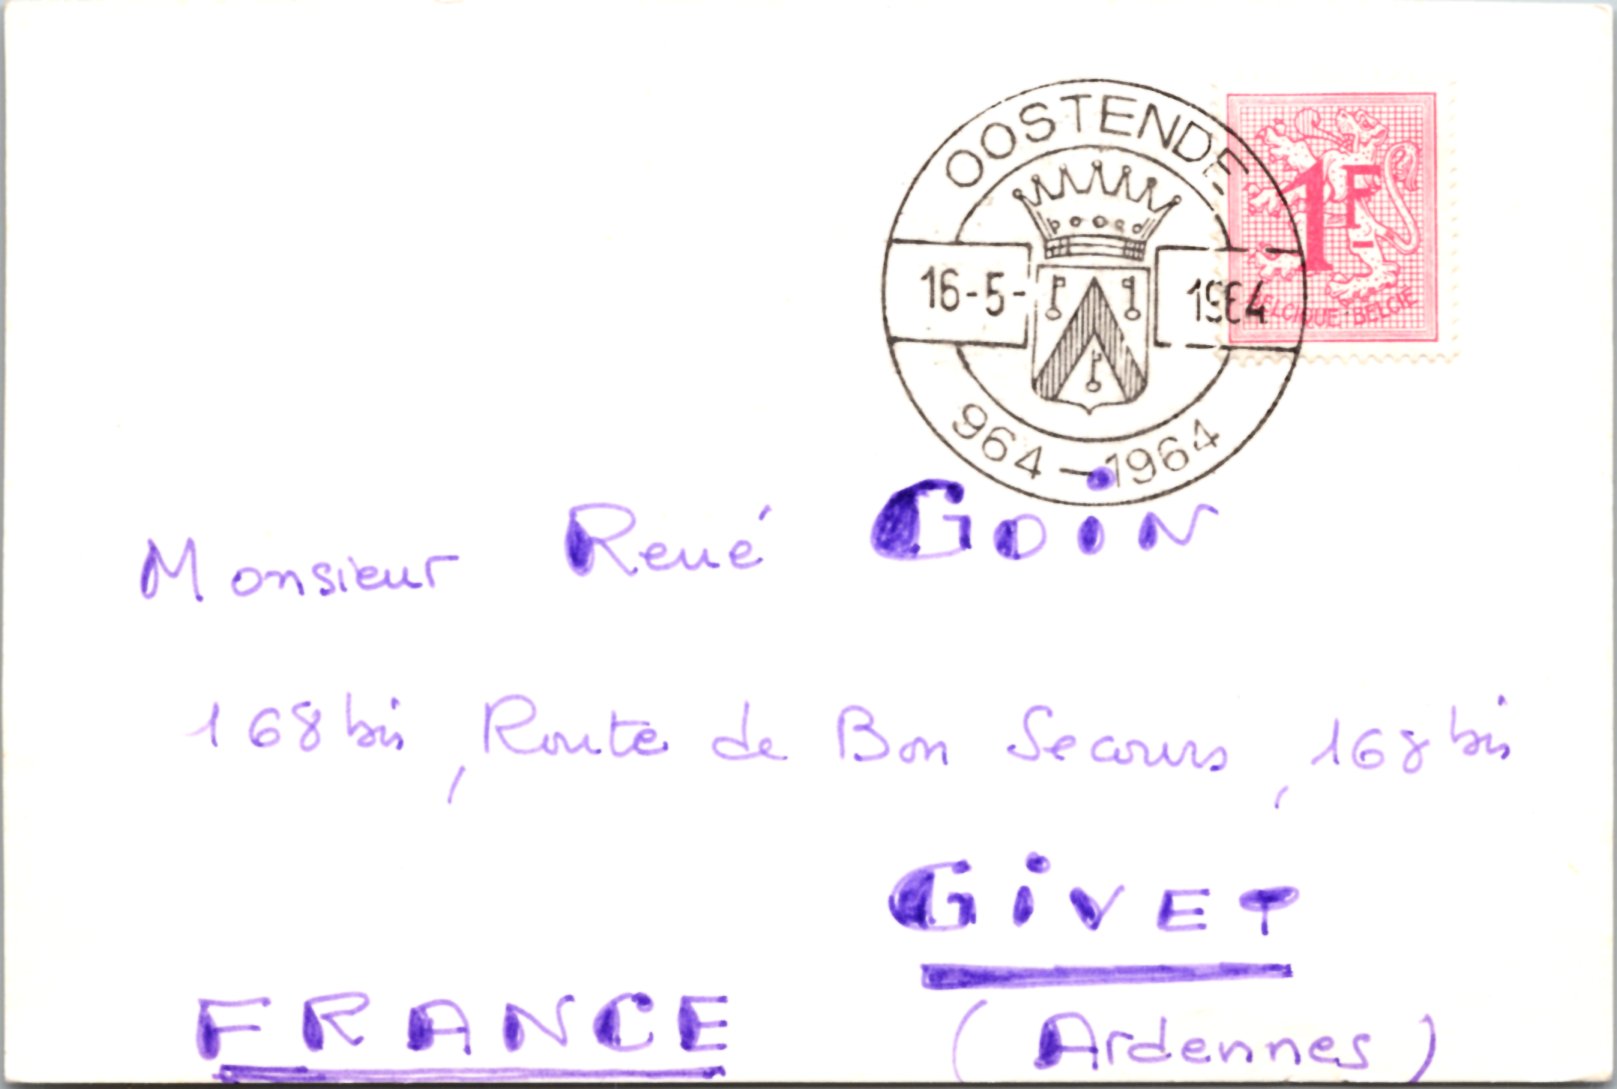 OOSTENDE
16-5-1964
964-1964
1F
BELGIQUE·BELGIE
Monsieur René GOIN
168 bis, Route de Bon Secours, 168 bis
GIVET
FRANCE
(Ardennes)